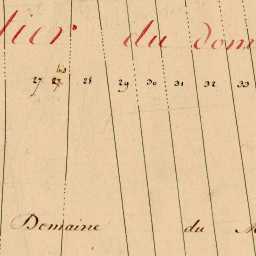 tier du dom
bis
27 27 28 29 30 31 32 33
Domaine du